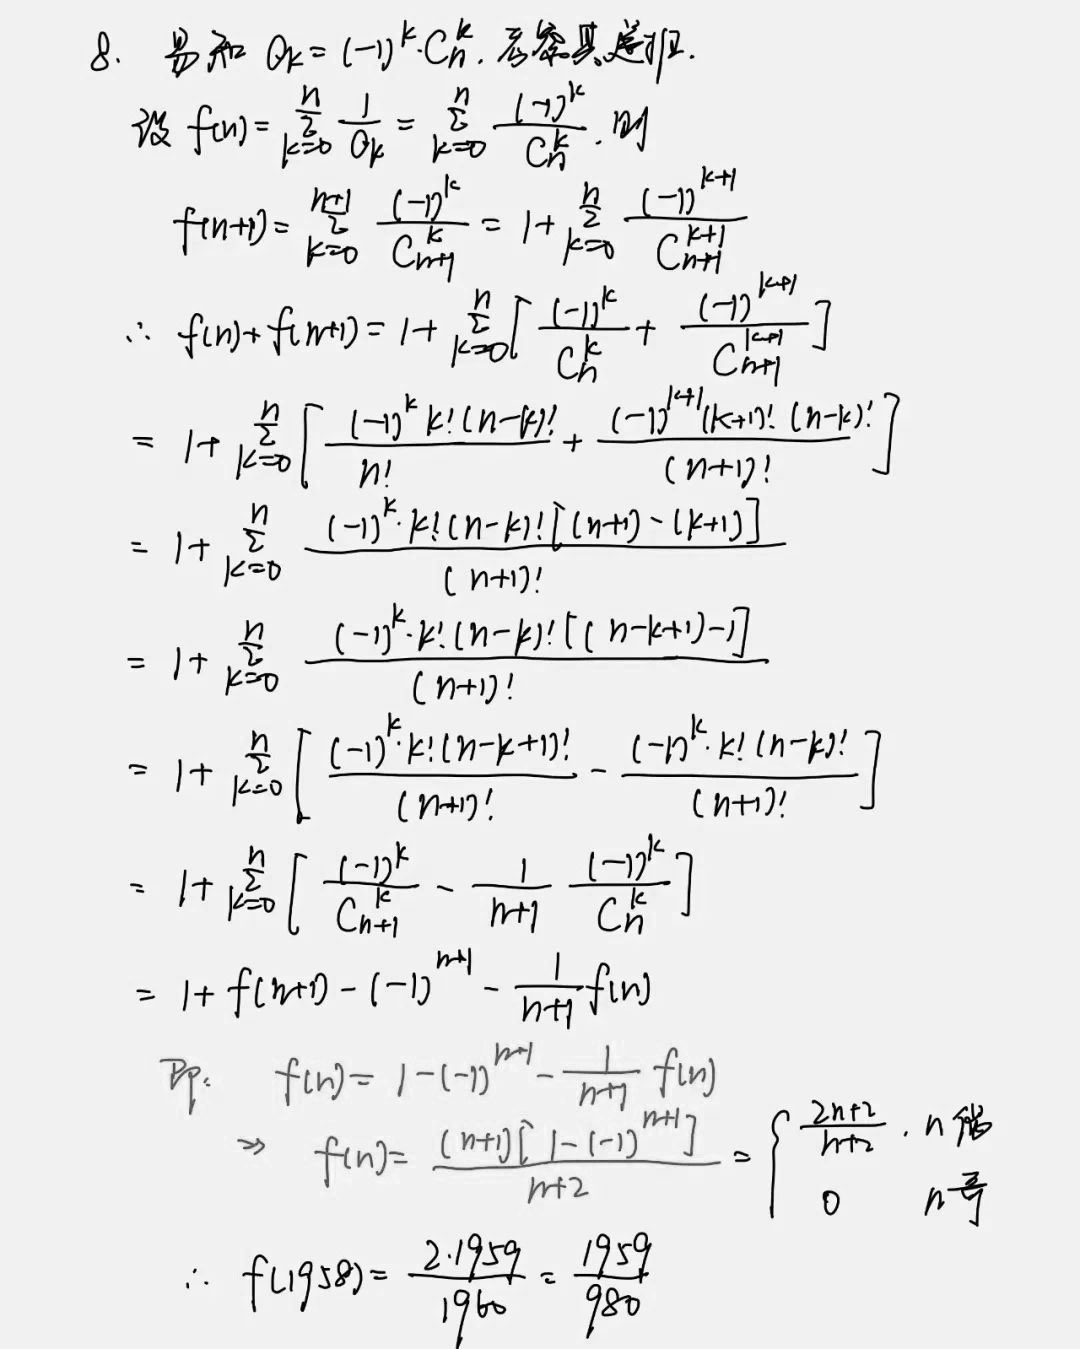 8. 易知 a_k = (-1)^k · C_n^k. 考察其递推.
设 f(n) = ∑_{k=0}^{n} 1/a_k = ∑_{k=0}^{n} (-1)^k / C_n^k. 则
f(n+1) = ∑_{k=0}^{n+1} (-1)^k / C_{n+1}^k = 1 + ∑_{k=0}^{n} (-1)^{k+1} / C_{n+1}^{k+1}
∴ f(n) + f(n+1) = 1 + ∑_{k=0}^{n} [ (-1)^k / C_n^k + (-1)^{k+1} / C_{n+1}^{k+1} ]
= 1 + ∑_{k=0}^{n} [ (-1)^k k! (n-k)! / n! + (-1)^{k+1} (k+1)! (n-k)! / (n+1)! ]
= 1 + ∑_{k=0}^{n} (-1)^k · k! (n-k)! [(n+1) - (k+1)] / (n+1)!
= 1 + ∑_{k=0}^{n} (-1)^k · k! (n-k)! [(n-k+1) - 1] / (n+1)!
= 1 + ∑_{k=0}^{n} [ (-1)^k · k! (n-k+1)! / (n+1)! - (-1)^k · k! (n-k)! / (n+1)! ]
= 1 + ∑_{k=0}^{n} [ (-1)^k / C_{n+1}^k - 1/(n+1) (-1)^k / C_n^k ]
= 1 + f(n+1) - (-1)^{n+1} - 1/(n+1) f(n)
即: f(n) = 1 - (-1)^{n+1} - 1/(n+1) f(n)
⇒ f(n) = (n+1)[1 - (-1)^{n+1}] / (n+2) = { (2n+2)/(n+2) . n偶
0 n奇
∴ f(1958) = 2·1959 / 1960 = 1959 / 980